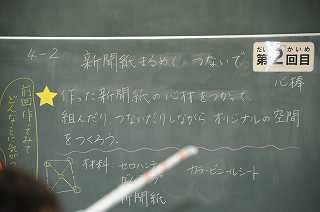 4-2
新聞紙まるめて、つないで
だい かいめ
第2回目
心棒
作った新聞紙の心材をつかって
組んだり、つないだりしながら オリジナルの空間
をつくろう。
前回作ってみて
材料 セロハンテ
カラービニールシート
新聞紙